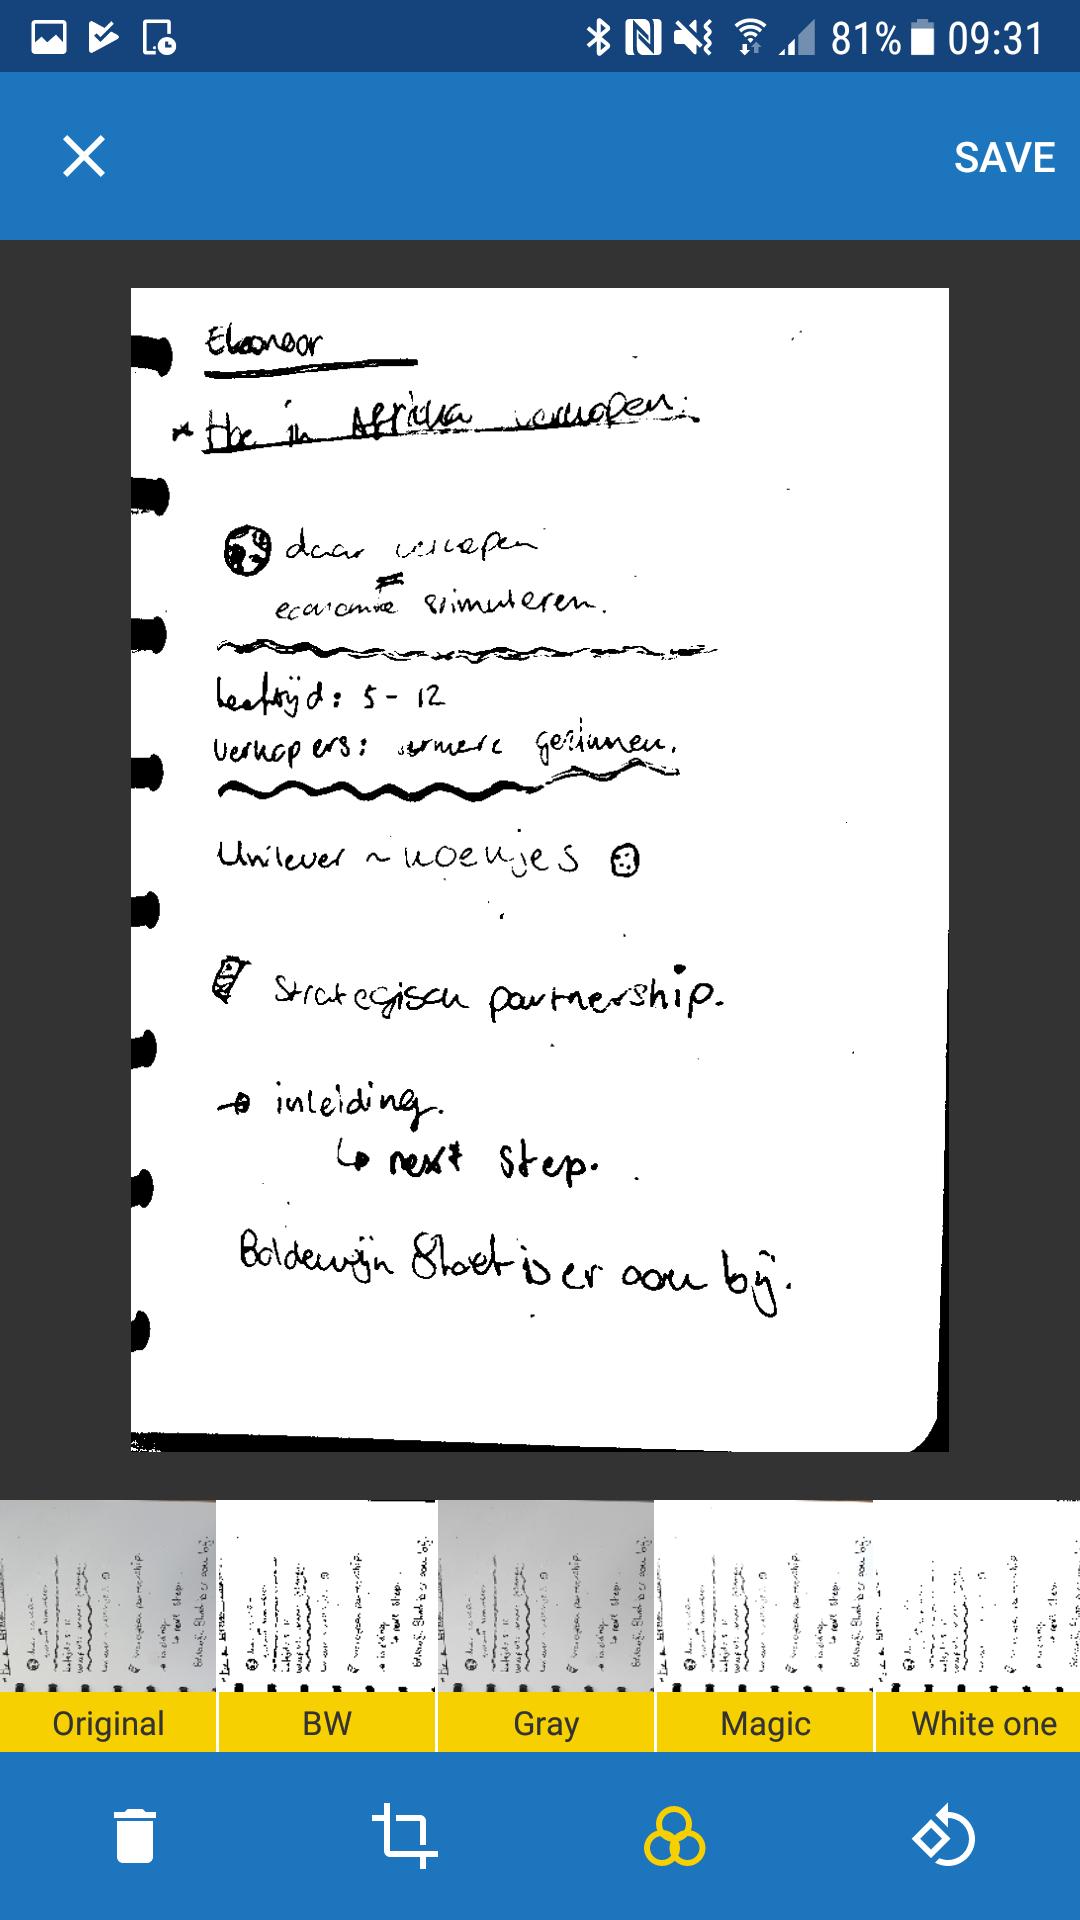 81% 09:31
SAVE
Eleonoor
* Hoe in Afrika verkopen.
daar verkopen
=
economie stimuleren.
leeftijd: 5 - 12
verkopers: armere gezinnen.
Unilever ~ koekjes
Strategisch partnership.
→ inleiding.
↳ next step.
Boldewijn Sloet is er aan bij.
Original BW Gray Magic White one